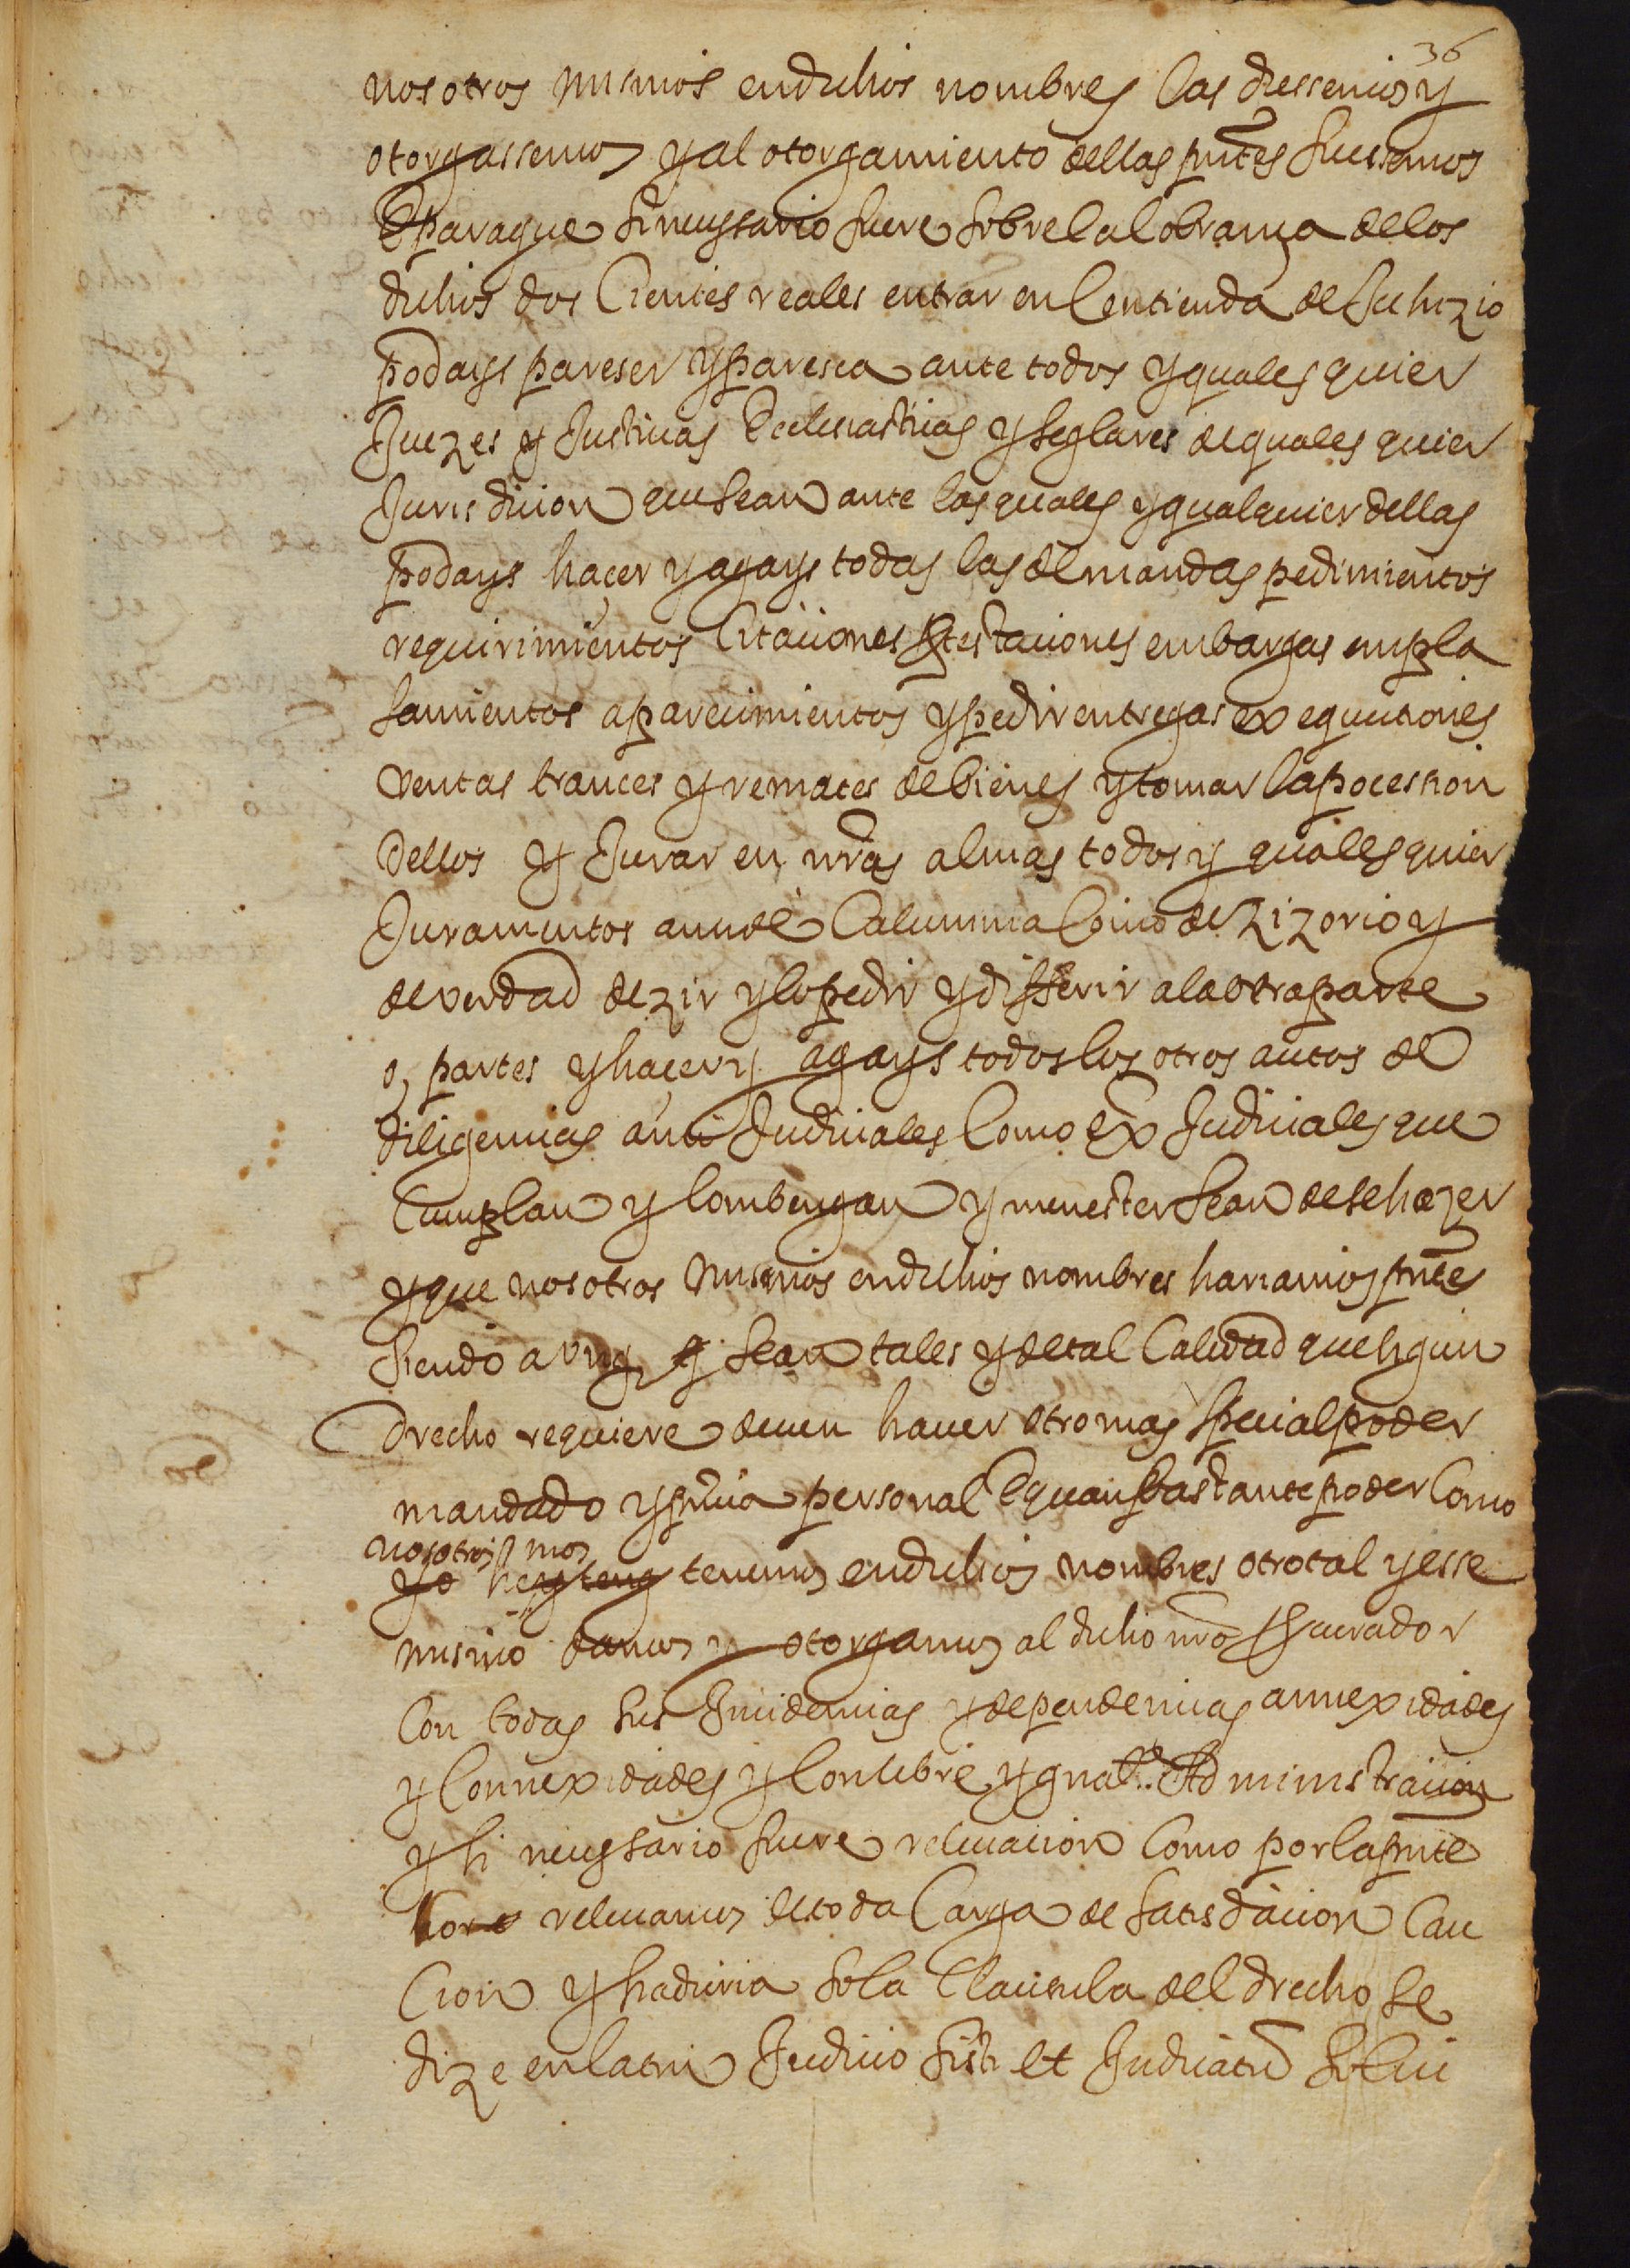 36
nosotros mismos en dichos nombres las diessemos y
otorgassemos y al otorgamiento dellas pntes fuessemos
E para que si necessario fuere sobre la cobrança de los
dichos dos cientes reales entrar en contienda de juhizio
podays pareser y paresca ante todos y quales quier
Juezes y Justicias Ecclesiasticas y seglares de quales quier
Jurisdicion que sean ante las quales y qual quier dellas
podays haçer y agays todas las demandas pedimientos
requirimientos citaciones ptestaciones embargas empla
samientos aparecimientos y pedir entregas exequciones
ventas trances y remates de bienes y tomar la pocession
dellos y Jurar en nras almas todos y quales quier
Juramentos anci de calumnia como dezizorio y
de verdad dezir y lo pedir y differir a la otra parte
o, partes y haçer y agays todos los otros autos de
diligencias anci Judiciales como ex Judiciales que
cumplan y combengan y menester sean de se hazer
y que nosotros mismos en dichos nombres hariamos pnte
siendo a unq q sean tales y de tal calidad que sigun
drecho requiere deuen hauer otro mas special poder
mandado y pncia personal E quan bastante poder como
nosotros mos
yo he y teng tenemos en dichos nombres otro tal y esse
mismo damos y otorgamos al dicho nro pcurador
con todas sus Incidencias y dependencias annexidades
y connexidades y con libre y gnal Administracion
y si necessario fuere releuacion como por la pnte
releuamos de toda carga de satisdacion cau
cion y fiaduria so la clausula del drecho se
dize en latin Judicio sisti et Judicatu solui